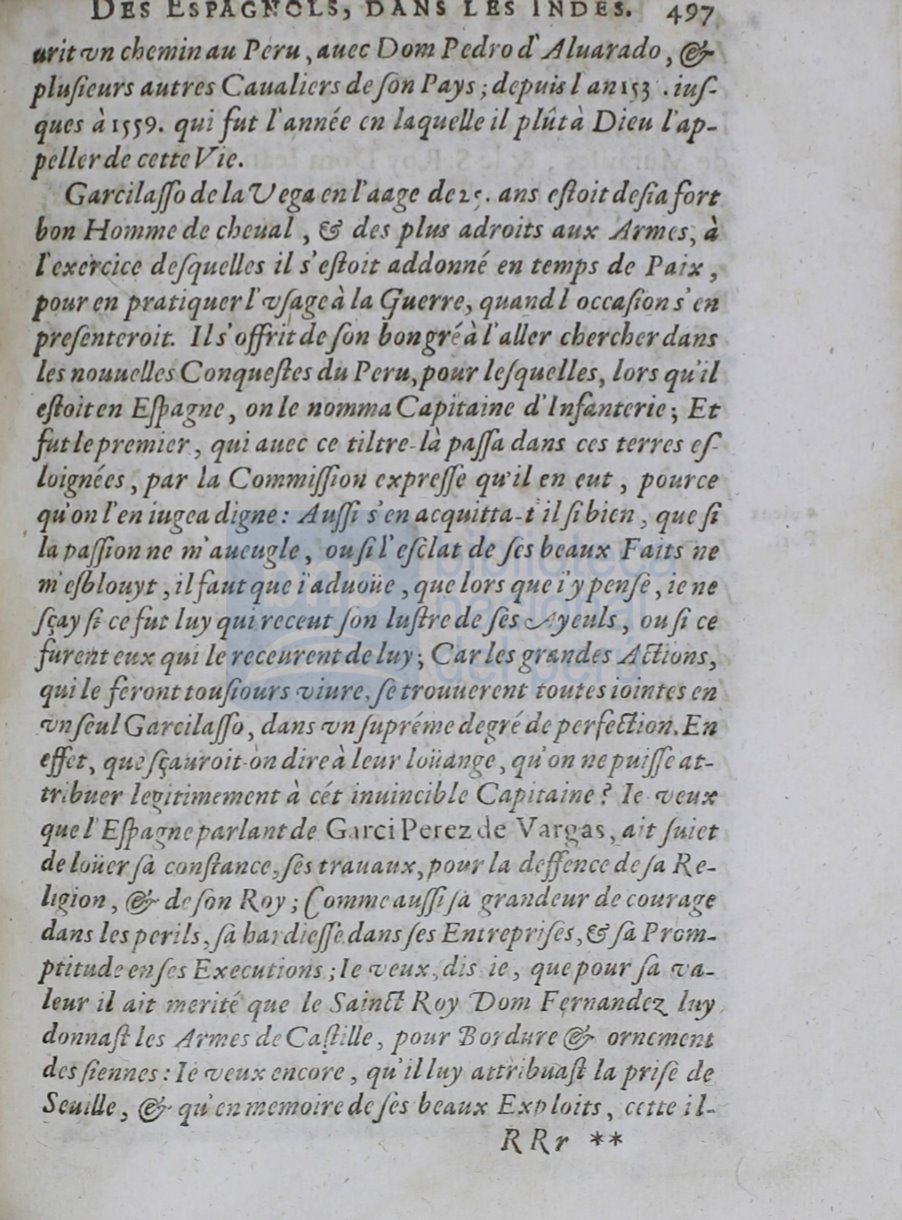 DES ESPAGNOLS, DANS LES INDES. 497
urit vn chemin au Peru, auec Dom Pedro d'Aluarado, &
pluſieurs autres Caualiers de ſon Pays; depuis l an 153 . iuſ-
ques à 1559. qui fut l'année en laquelle il plût à Dieu l'ap-
peller de cette Vie.
Garcilaſſo de la Vega en l'aage de 25. ans eſtoit deſia fort
bon Homme de cheual, & des plus adroits aux Armes, à
l'exercice deſquelles il s'eſtoit addonné en temps de Paix,
pour en pratiquer l'vſage à la Guerre, quand l occaſion s'en
preſenteroit. Il s'offrit de ſon bon gré à l'aller chercher dans
les nouuelles Conqueſtes du Peru, pour leſquelles, lors qu'il
eſtoit en Eſpagne, on le nomma Capitaine d'Infanterie; Et
fut le premier, qui auec ce tiltre-là paſſa dans ces terres eſ-
loignées, par la Commiſſion expreſſe qu'il en eut, pource
qu'on l'en iugea digne: Auſſi s'en acquitta-t'il ſi bien, que ſi
la paſſion ne m'aueugle, ou ſi l'eſclat de ſes beaux Faits ne
m'eſblouyt, il faut que i'aduoüe, que lors que i'y penſe, ie ne
ſçay ſi ce fut luy qui receut ſon luſtre de ſes Ayeuls, ou ſi ce
furent eux qui le receurent de luy; Car les grandes Actions,
qui le feront touſiours viure, ſe trouuerent toutes iointes en
vn ſeul Garcilaſſo, dans vn ſupréme degré de perfection. En
effet, que ſçauroit-on dire à leur loüange, qu'on ne puiſſe at-
tribuer legitimement à cét inuincible Capitaine? Ie veux
que l'Eſpagne parlant de Garci Perez de Vargas, ait ſuiet
de loüer ſa conſtance, ſes trauaux, pour la deffence de ſa Re-
ligion, & de ſon Roy; Comme auſſi ſa grandeur de courage
dans les perils, ſa hardieſſe dans ſes Entrepriſes, & ſa Prom-
ptitude en ſes Executions; Ie veux, dis ie, que pour ſa va-
leur il ait merité que le Sainct Roy Dom Fernandez luy
donnaſt les Armes de Caſtille, pour Bordure & ornement
des ſiennes: Ie veux encore, qu'il luy attribuaſt la priſe de
Seuille, & qu'en memoire de ſes beaux Exploits, cette il-
RRr **
bnp biblioteca
nacional
del perú